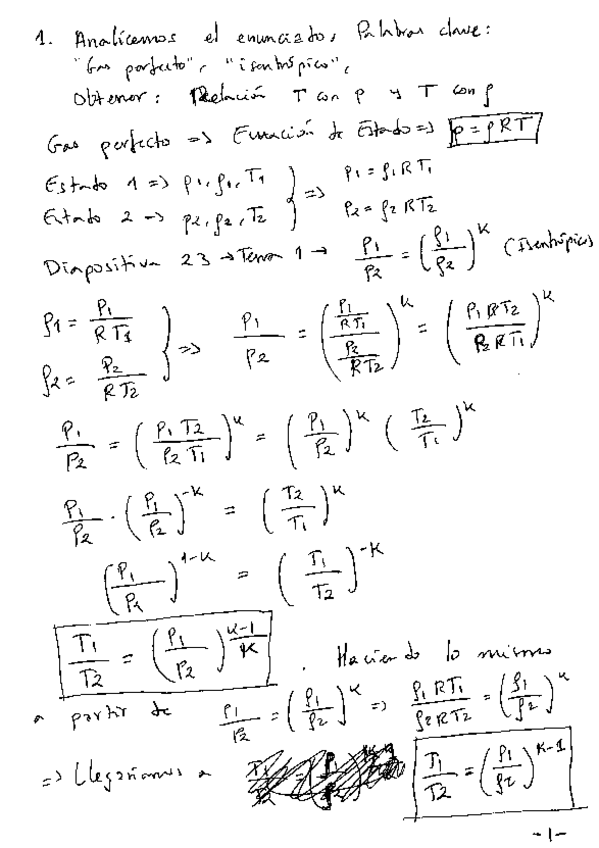 1. Analicemos el enunciado, Palabras clave:
"Gas perfecto", "isentrópico",
Obtener: Relación T con p y T con ρ
Gas perfecto => Ecuación de Estado => p = ρRT
Estado 1 => p1, ρ1, T1 } => p1 = ρ1RT1
Estado 2 => p2, ρ2, T2 } p2 = ρ2RT2
Diapositiva 23 → Tema 1 → p1/p2 = (ρ1/ρ2)^k (Isentrópico)
ρ1 = p1/(RT1) } => p1/p2 = ((p1/(RT1))/(p2/(RT2)))^k = (p1RT2/(p2RT1))^k
ρ2 = p2/(RT2)
p1/p2 = (p1T2/(p2T1))^k = (p1/p2)^k (T2/T1)^k
p1/p2 · (p1/p2)^-k = (T2/T1)^k
(p1/p2)^(1-k) = (T1/T2)^-k
T1/T2 = (p1/p2)^((k-1)/k). Haciendo lo mismo
a partir de p1/p2 = (ρ1/ρ2)^k => ρ1RT1/(ρ2RT2) = (ρ1/ρ2)^k
=> Llegaríamos a T1/T2 = (ρ1/ρ2)^(k-1)
-1-